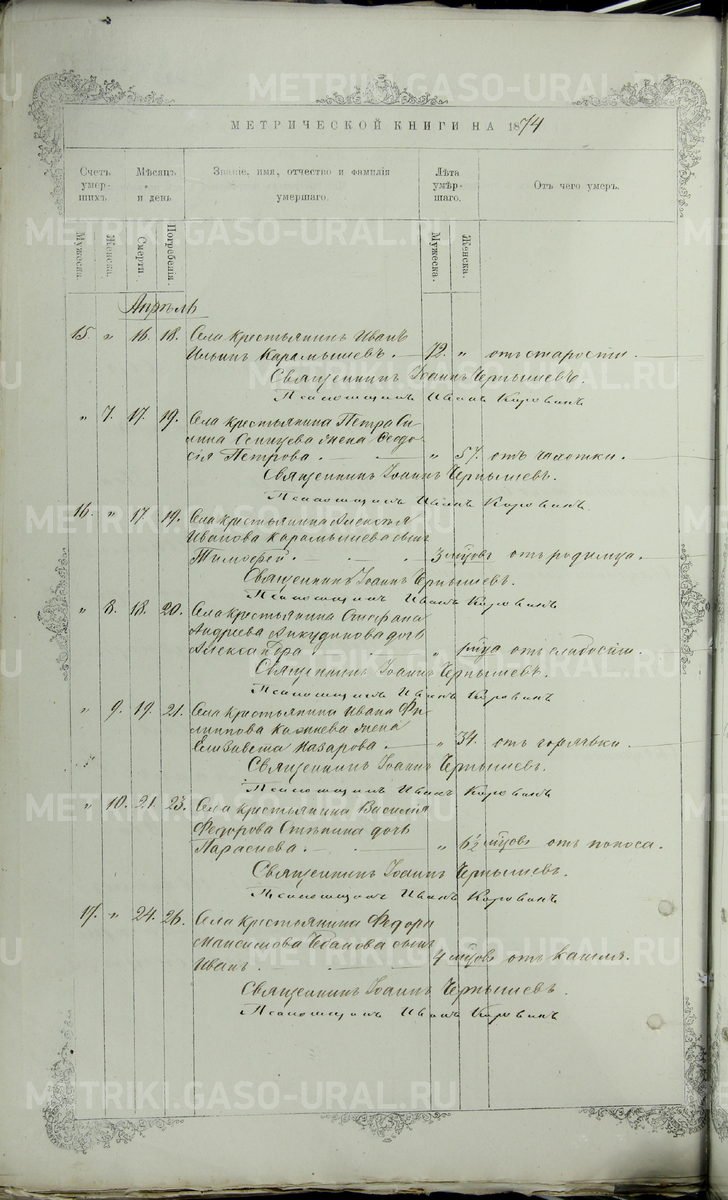 METRIKI.GASO-URAL.RU
МЕТРИЧЕСКОЙ КНИГИ НА 1874
Счетъ умер-шихъ.
Мѣсяцъ и день
Званіе, имя, отчество и фамилія умершаго.
Лѣта умер-шаго.
Отъ чего умеръ.
Мужеска. Женска. Смерти. Погребенія. Мужеска. Женска.
Апрѣль
15. " 16. 18. Села крестьянинъ Иванъ
Ильинъ Карамышевъ. 72. " отъ старости.
Священникъ Іоаннъ Чернышевъ.
Псаломщикъ Иванъ Коровинъ
" 7. 17. 19. Села крестьянина Петра Си-
лина жена Ѳеодо-
сія Петрова. " 57. отъ чахотки.
Священникъ Іоаннъ Чернышевъ.
Псаломщикъ Иванъ Коровинъ
16. " 17 19. Села крестьянина Алексѣя
Иванова Карамышева сынъ
Тимофей. 3 мѣсцовъ отъ родимца.
Священникъ Іоаннъ Чернышевъ.
Псаломщикъ Иванъ Коровинъ
" 8. 18. 20. Села крестьянина Стефана
Андреева Анкудинова дочь
Александра. " отъ слабости.
Священникъ Іоаннъ Чернышевъ.
Псаломщикъ Иванъ Коровинъ
" 9. 19. 21. Села крестьянина Ивана Фи-
липпова жена
Елизавета Назарова. " 34. отъ горячьки.
Священникъ Іоаннъ Чернышевъ.
Псаломщикъ Иванъ Коровинъ
" 10. 21. 23. Села крестьянина Василія
Федорова дочь
Параскева. " 6½ мѣсцовъ отъ поноса.
Священникъ Іоаннъ Чернышевъ.
Псаломщикъ Иванъ Коровинъ
17. " 24. 26. Села крестьянина Федора
Максимова сынъ
Иванъ. 4 мѣсцовъ отъ кашля.
Священникъ Іоаннъ Чернышевъ.
Псаломщикъ Иванъ Коровинъ